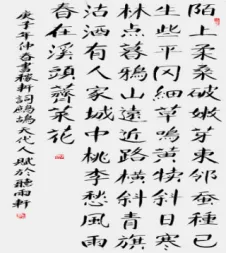 陌上柔桑破嫩芽東邻蚕種已
生些平冈細草鳴黄犢斜日寒
林点暮鴉山遠近路横斜青旗
沽酒有人家城中桃李愁風雨
春在溪頭薺菜花
庚子年仲春書稼軒詞鷓鴣天代人賦於聽雨軒